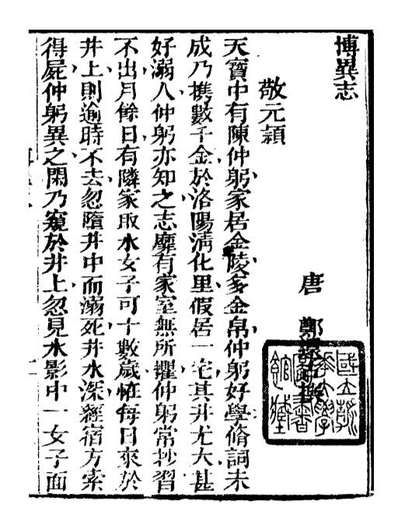 博異志
唐 鄭
敬元頴
天寶中有陳仲躬家居金陵多金帛仲躬好學脩詞未
成乃攜數千金於洛陽淸化里假居一宅其井尤大甚
好溺人仲躬亦知之志靡有家室無所懼仲躬常抄習
不出月餘日有隣家取水女子可十數歲恠每日來於
井上則逾時不去忽墮井中而溺死井水深經宿方索
得屍仲躬異之閑乃窺於井上忽見水影中一女子面